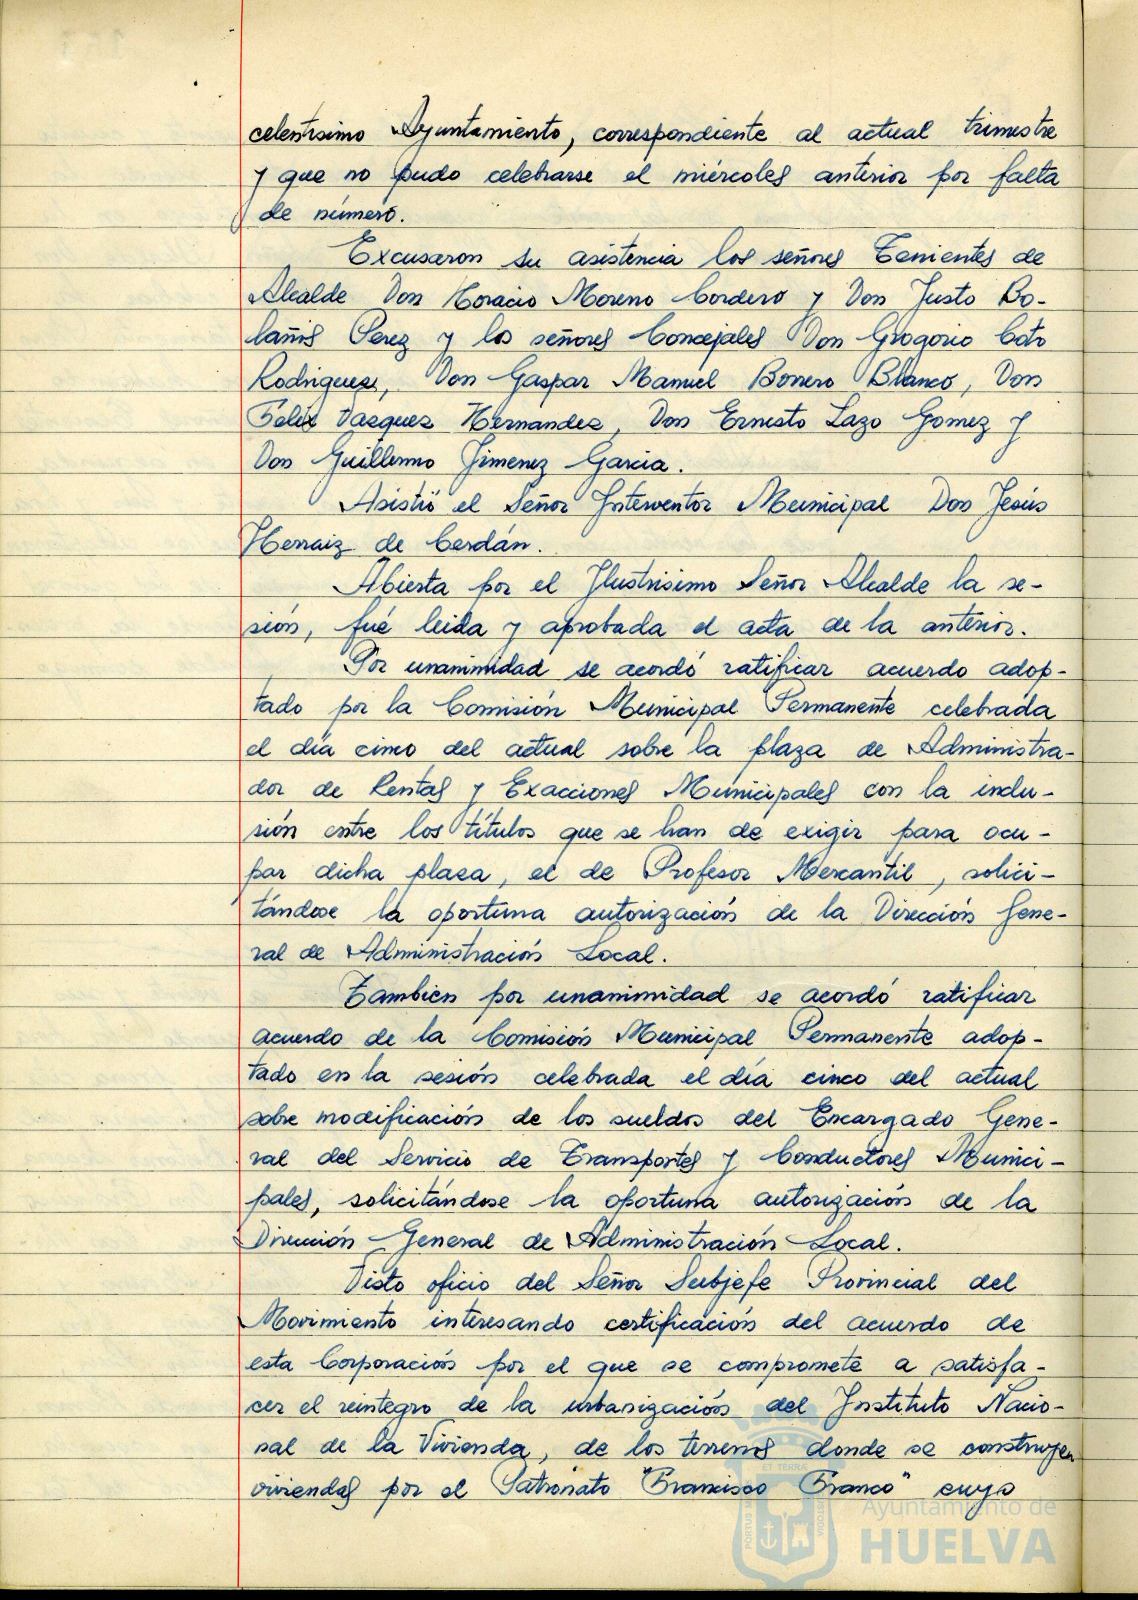 celentisimo Ayuntamiento, correspondiente al actual trimestre
y que no pudo celebrarse el miércoles anterior por falta
de número.
Excusaron su asistencia los señores Tenientes de
Alcalde Don Horacio Moreno Cordero y Don Justo Bo-
lañis Perez y los señores Concejales Don Grogorio Coto
Rodriguez, Don Gaspar Manuel Borrero Blanco, Don
Felix Vazquez Hernandez, Don Ernesto Lazo Gomez y
Don Guillermo Jimenez Garcia.
Asistió el Señor Interventor Municipal Don Jesús
Herraiz de Cerdán.
Abierta por el Ilustrisimo Señor Alcalde la se-
sión, fué leida y aprobada el acta de la anterior.
Por unanimidad se acordó ratificar acuerdo adop-
tado por la Comisión Municipal Permanente celebrada
el día cinco del actual sobre la plaza de Administra-
dor de Rentas y Exacciones Municipales con la inclu-
sión entre los títulos que se han de exigir para ocu-
par dicha plaza, el de Profesor Mercantil, solici-
tándose la oportuna autorización de la Dirección Gene-
ral de Administración Local.
Tambien por unanimidad se acordó ratificar
acuerdo de la Comisión Municipal Permanente adop-
tado en la sesión celebrada el día cinco del actual
sobre modificación de los sueldos del Encargado Gene-
ral del Servicio de Transportes y Conductores Munici-
pales, solicitándose la oportuna autorización de la
Dirección General de Administración Local.
Visto oficio del Señor Subjefe Provincial del
Movimiento interesando certificación del acuerdo de
esta Corporación por el que se compromete a satisfa-
cer el reintegro de la urbanización del Instituto Nacio-
nal de la Vivienda, de los terrenos donde se construyen
viviendas por el Patronato "Francisco Franco" cuyo
ET TERRÆ
PORTUS MARIS
CUSTODIA
Ayuntamiento de
HUELVA